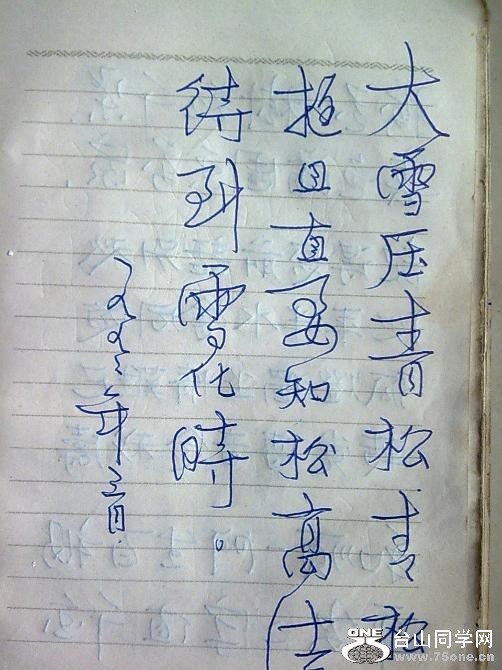 大雪压青松青松
挺且直要知松高洁
待到雪化時。
年
ONE
台山同学网
www.75one.cn